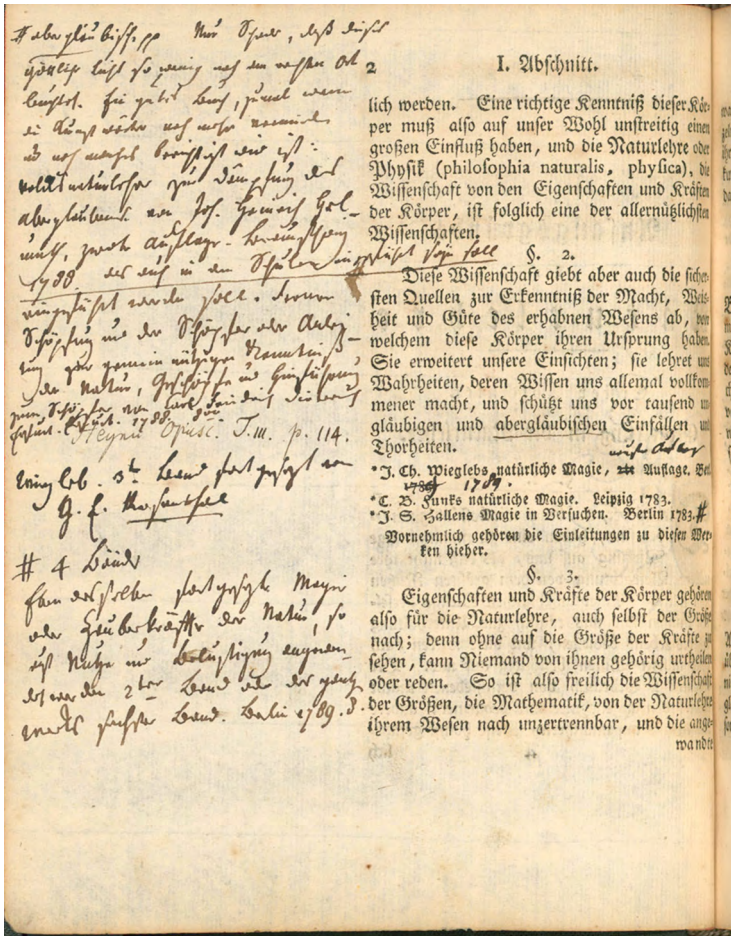 # abergläubisch. pp Nur Schade, daß dieses
göttliche Licht so wenig noch am rechten Ort
leuchtet. Ein gutes Buch, zumal wenn
die Kunstwörter noch mehr vermieden
und noch manches berichtigt wird ist:
Volksnaturlehre zur Dämpfung des
Aberglaubens von Joh. Heinrich Hel-
muth, zweite Auflage. Braunschweig
1788 das auch in den Schulen eingeführt seyn soll
eingeführt werden soll.
Schöpfung und der Schöpfer oder Anlei-
tung zur gemeinnützigen Kenntniß
der Natur, Geschöpfe und Hinführung
zum Schöpfer von Carl
Erfurt. 1788.
Heynii Opusc. T. III. p. 114.
Wiegleb. 3ter Band fortgesetzt von
G. E. Rosenthal
# 4 Bände
Eben desselben fortgesetzte Magie
oder Zauberkräfte der Natur, so
auf Nutzen und Belustigung angewen-
det werden 2ter Band oder des ganzen
Werks sechster Band. Berlin 1789. 8.
2 I. Abschnitt.
lich werden. Eine richtige Kenntniß dieser Kör-
per muß also auf unser Wohl unstreitig einen
großen Einfluß haben, und die Naturlehre oder
Physik (philosophia naturalis, physica), die
Wissenschaft von den Eigenschaften und Kräften
der Körper, ist folglich eine der allernützlichsten
Wissenschaften.
§. 2.
Diese Wissenschaft giebt aber auch die sicher-
sten Quellen zur Erkenntniß der Macht, Weis-
heit und Güte des erhabnen Wesens ab, von
welchem diese Körper ihren Ursprung haben.
Sie erweitert unsere Einsichten; sie lehret uns
Wahrheiten, deren Wissen uns allemal vollkom-
mener macht, und schützt uns vor tausend un-
gläubigen und abergläubischen Einfällen und
Thorheiten.
*J. Ch. Wieglebs natürliche Magie, 2te Auflage. Berl.
1786 1789.
*C. B. Funks natürliche Magie. Leipzig 1783.
*J. S. Hallens Magie in Versuchen. Berlin 1783. #
Vornehmlich gehören die Einleitungen zu diesen Wer-
ken hieher.
§. 3.
Eigenschaften und Kräfte der Körper gehören
also für die Naturlehre, auch selbst der Größe
nach; denn ohne auf die Größe der Kräfte zu
sehen, kann Niemand von ihnen gehörig urtheilen
oder reden. So ist also freilich die Wissenschaft
der Größen, die Mathematik, von der Naturlehre
ihrem Wesen nach unzertrennbar, und die ange-
wandte